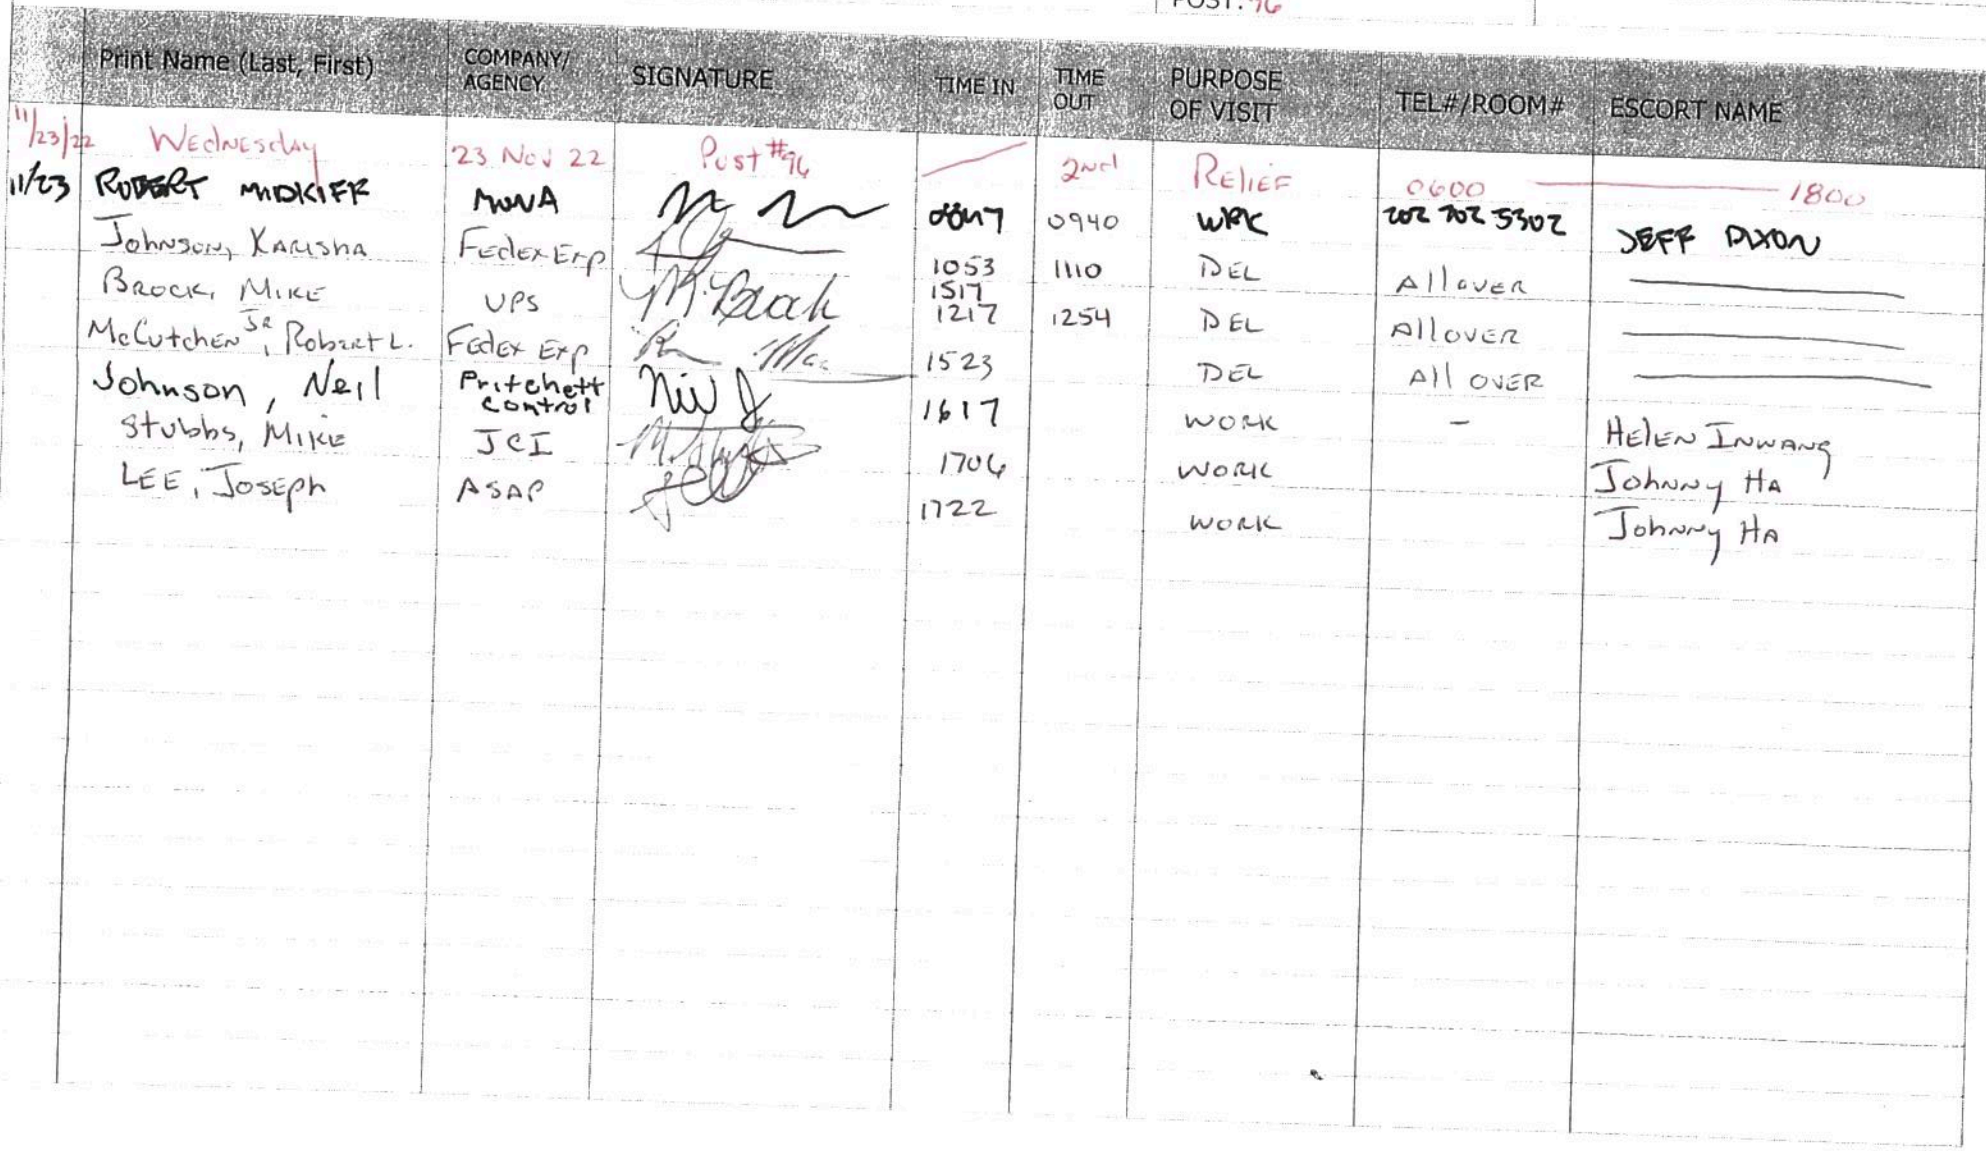 POST: 96
Print Name (Last, First) COMPANY/ AGENCY SIGNATURE TIME IN TIME OUT PURPOSE OF VISIT TEL#/ROOM# ESCORT NAME
11/23/22 Wednesday 23 Nov 22 Post #96 2nd Relief 0600 1800
11/23 ROBERT MIDKIFF 0940 WRK 202 702 5302 JEFF DIXON
Johnson, Karisha Fedex Exp 1053 1110 DEL All over
Brock, Mike UPS M. Brock 1517 1217 1254 DEL All over
McCutchen Jr, Robert L. Fedex Exp 1523 DEL All over
Johnson, Neil Pritchett Control 1617 WORK - Helen Inwang
Stubbs, Mike JCI 1706 WORK Johnny Ha
LEE, Joseph ASAP 1722 WORK Johnny Ha